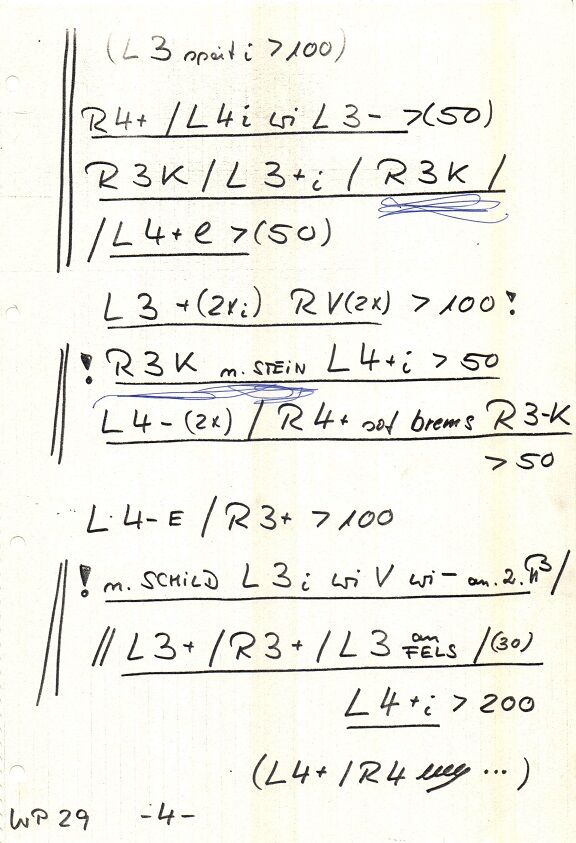 (L 3 spät i > 100)
R4+ / L4i wi L 3- >(50)
R 3K / L3+i / R3K /
/ L4+e >(50)
L 3 +(2xi) R V(2x) > 100 !
! R3K n. STEIN L4+i > 50
L4-(2x) / R4+ sof brems R3-K
> 50
L 4-E / R3+ > 100
! n. SCHILD L3i wi V wi- an. 2.
// L3+ / R3+ / L3 an FELS / (30)
L4+i > 200
(L4+ / R4 ...)
WP 29 -4-